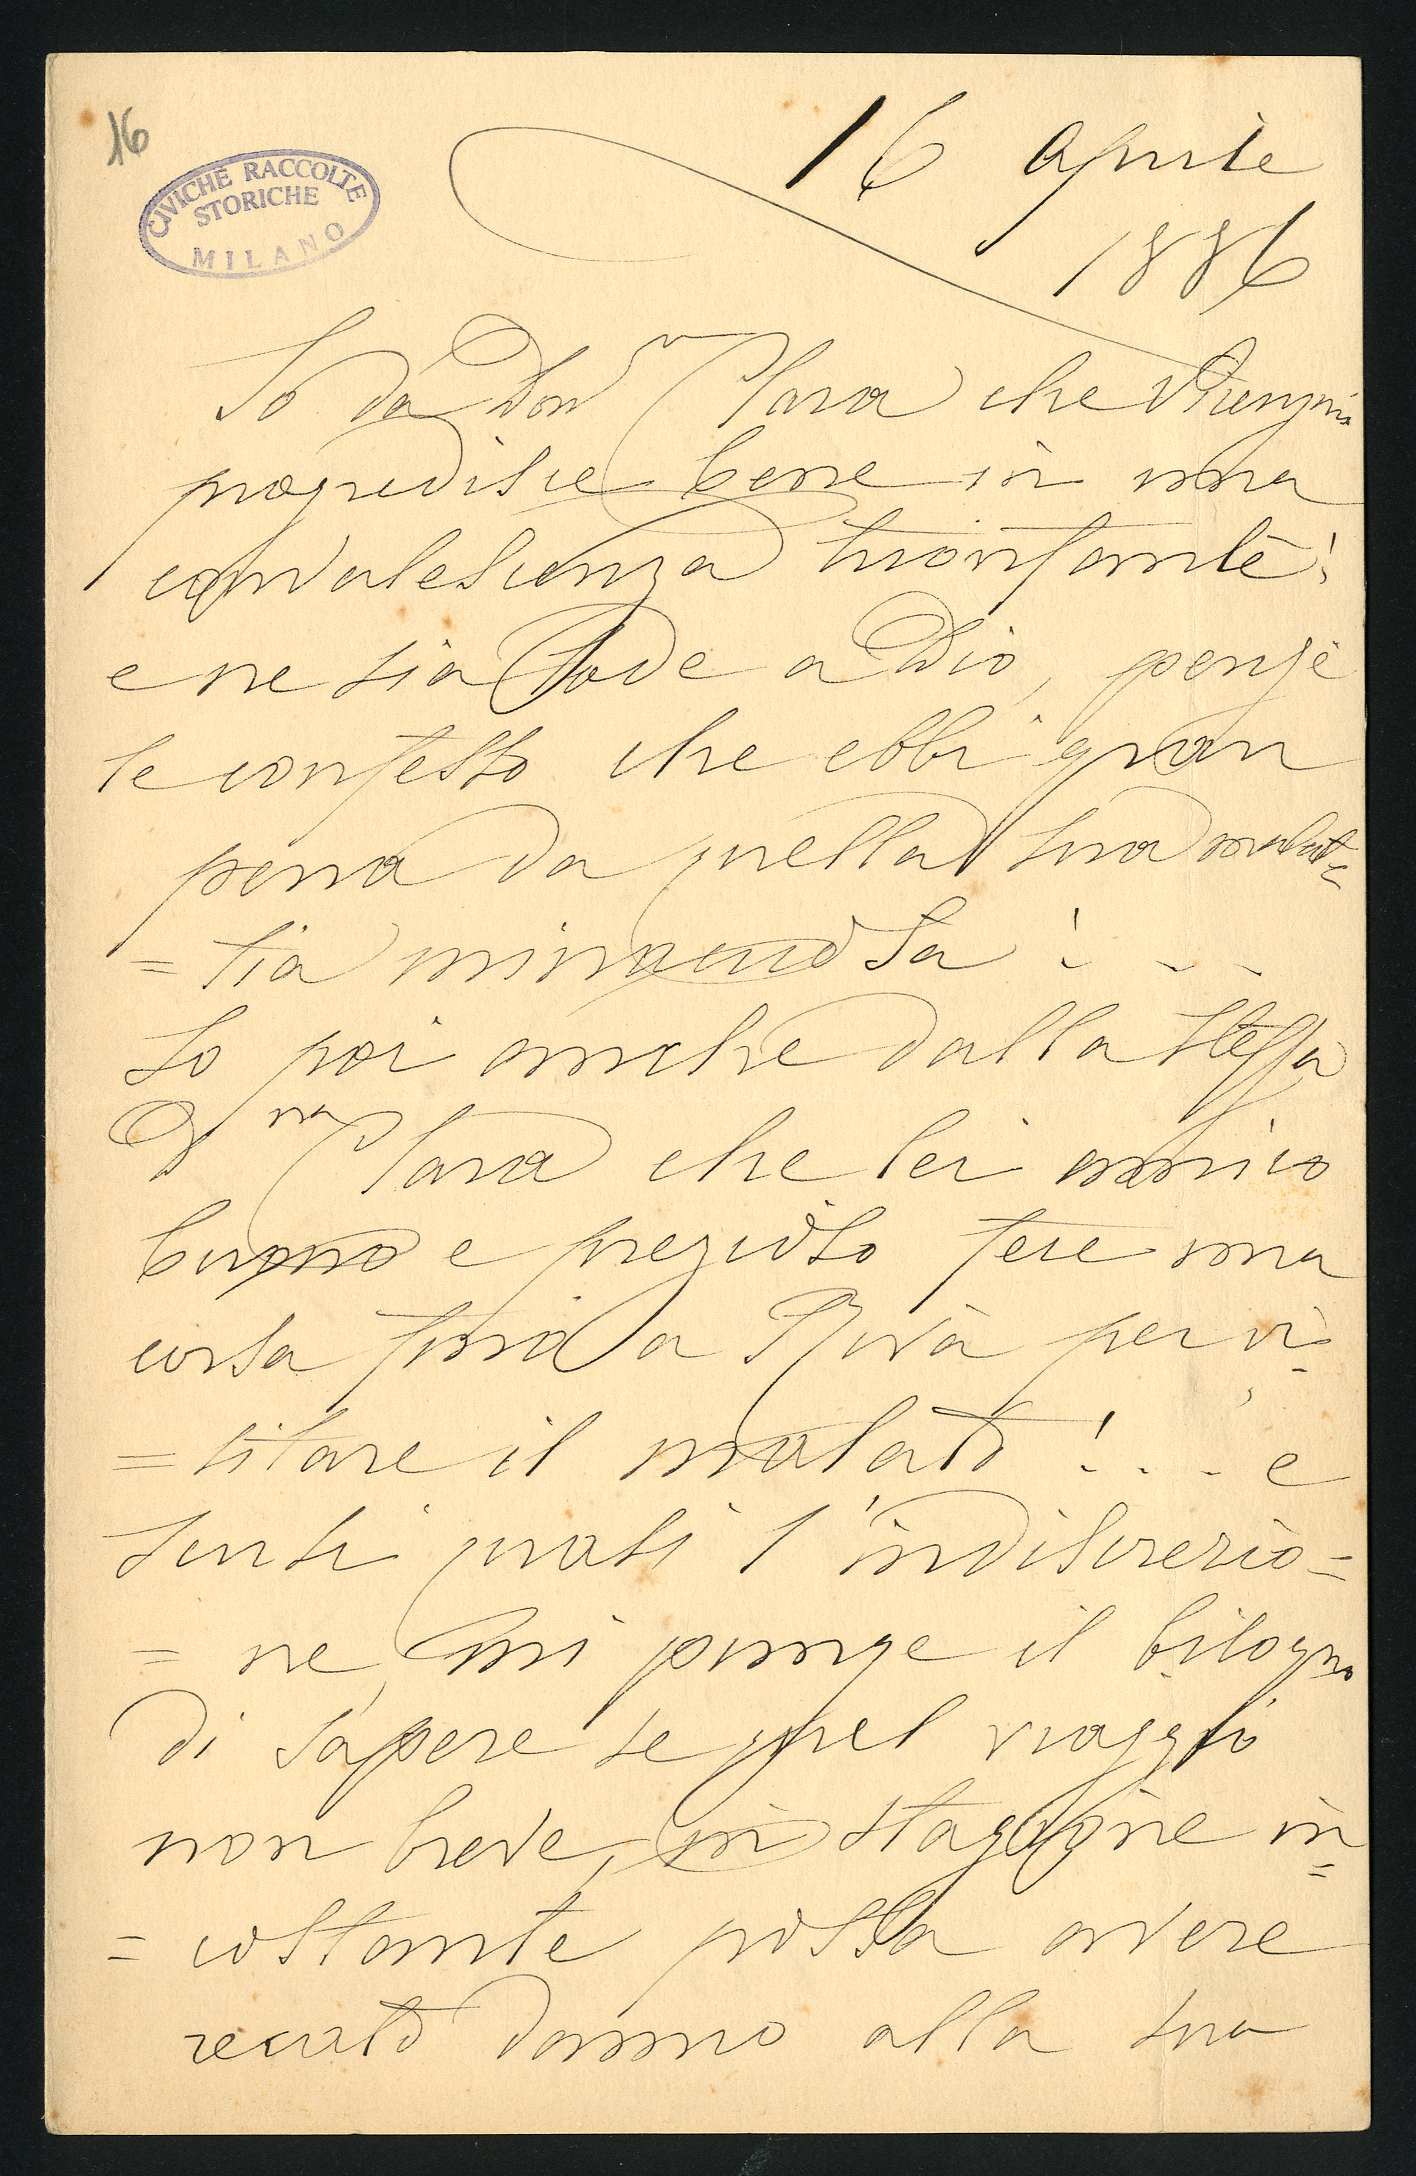 16
CIVICHE RACCOLTE
STORICHE
MILANO
16 aprile
1886
So da Donna Clara che
progredisce bene in una
convalescenza trionfante!
e ne sia lode a Dio, perché
le confesso che ebbi gran
pena da quella sua malat=
=tia minacciosa!...
So poi anche dalla stessa
Dna Clara che lei amico
buono e prezioso fece una
corsa fino a Rivà per vi=
=sitare il malato!... e
scusi quasi l'indiscrezio=
=ne, mi punge il bisogno
di sapere se quel viaggio
non breve, in stagione in=
=costante possa avere
recato danno alla sua